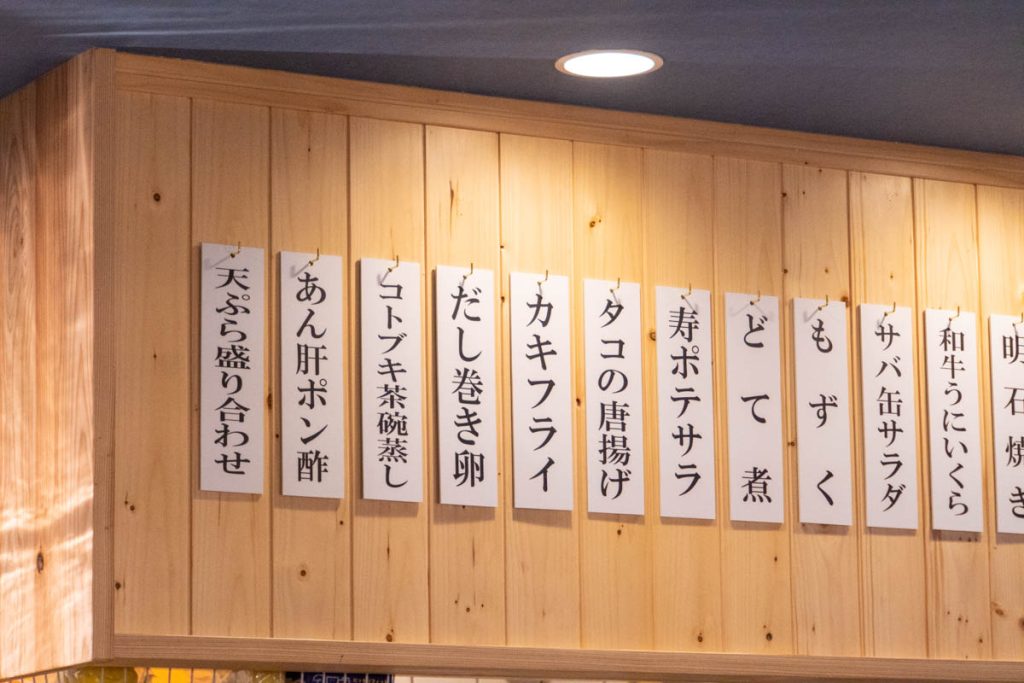 明石焼き
和牛うにいくら
サバ缶サラダ
もずく
どて煮
寿ポテサラ
タコの唐揚げ
カキフライ
だし巻き卵
コトブキ茶碗蒸し
あん肝ポン酢
天ぷら盛り合わせ